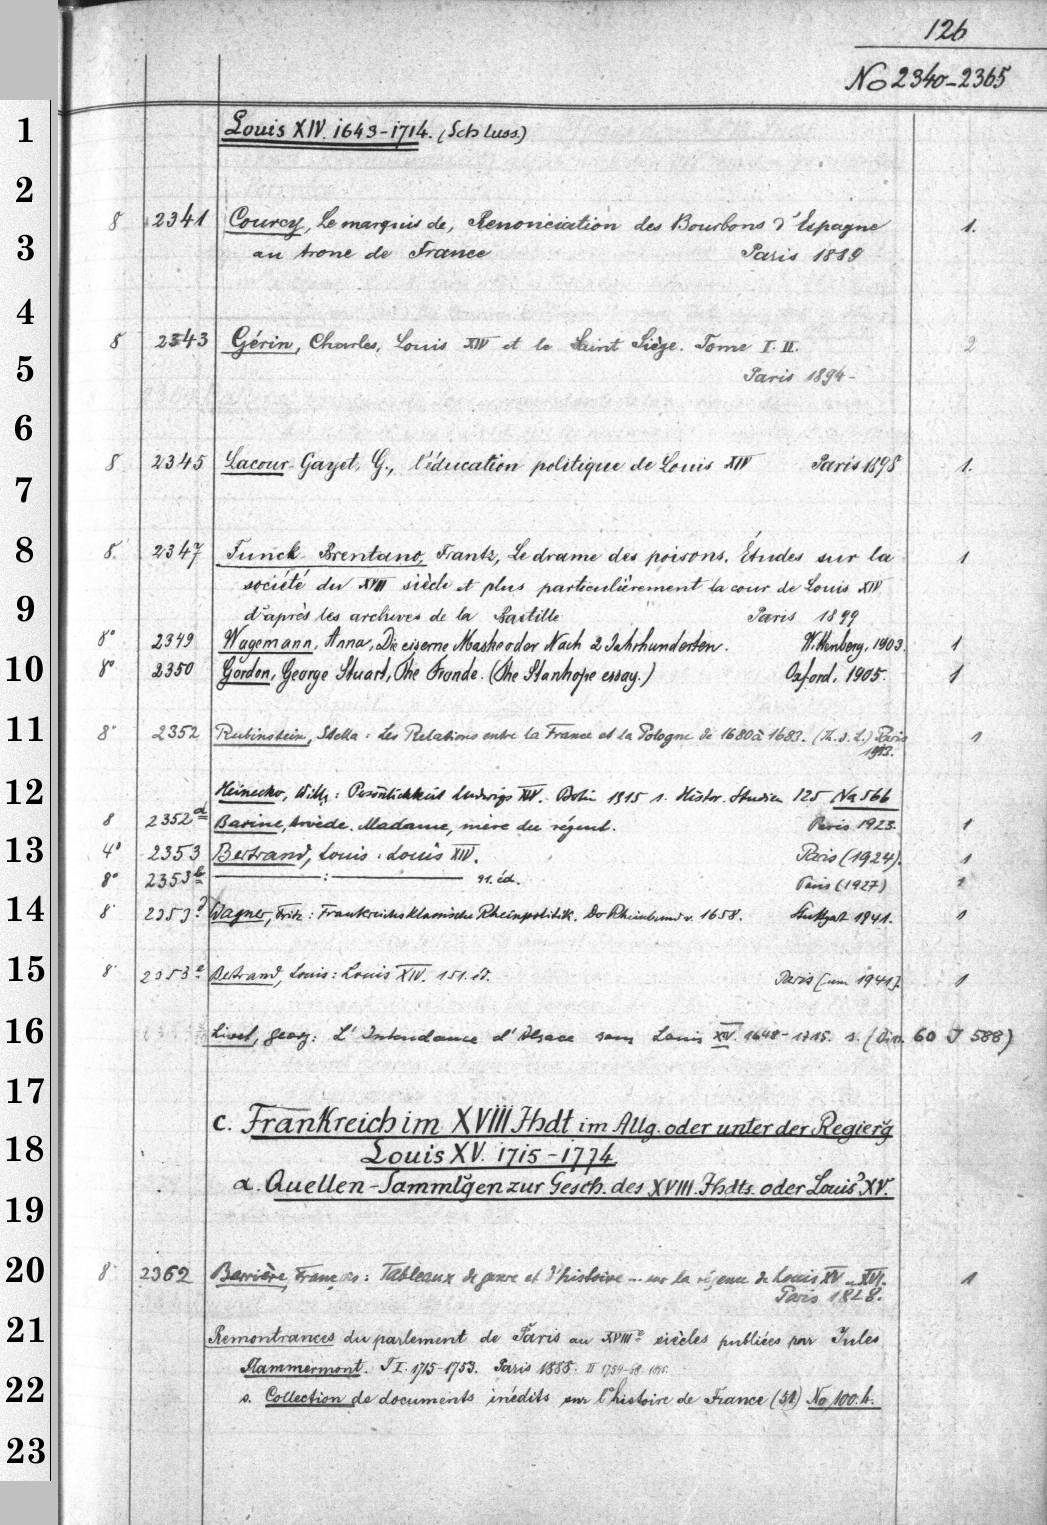 126
No 2340-2365
1 Louis XIV. 1643-1714. (Schluss)
2
8 2341 Courcy, Le marquis de, Renonciation des Bourbons d'Espagne 1.
3 au trone de France Paris 1889
4
8 2343 Gérin, Charles, Louis XIV et le Saint Siège. Tome I. II. 2
5 Paris 1894-
6
8 2345 Lacour-Gayet, G., l'éducation politique de Louis XIV Paris 1898 1.
7
8 8 2347 Funck-Brentano, Frantz, Le drame des poisons. Études sur la 1
société du XVII siècle et plus particulièrement la cour de Louis XIV
9 d'après les archives de la Bastille Paris 1899
8° 2349 Wagemann, Anna, Die eiserne Maske oder Nach 2 Jahrhunderten. Wittenberg, 1903. 1
10 8° 2350 Gordon, George Stuart, The Fronde. (The Stanhope essay.) Oxford, 1905. 1
11 8° 2352 Rubinstein, Stella: Les Relations entre la France et la Pologne de 1680 à 1683. Paris 1
1913.
12 Heinecke, : Persönlichkeit Ludwigs XIV. Berlin 1915 s. Histor. Studien 125 No 566
8 2352a Barine, Arvède. Madame, mère du régent. Paris 1923. 1
13 4° 2353 Bertrand, Louis: Louis XIV. Paris (1924). 1
8° 2353b — : — 91. éd. Paris (1927) 1
14 8° 2353 Wagner, Fritz: Frankreichs klassische Rheinpolitik. Der Rheinbund v. 1658. Stuttgart 1941. 1
15 8° 2353e Bertrand, Louis: Louis XIV. 151. éd. Paris [um 1941]. 1
16 Livet, Georg: L'Intendance d'Alsace sous Louis XIV. 1648-1715. s. (Diss. 60 J 588)
17
c. Frankreich im XVIII Jhdt im Allg. oder unter der Regierg
18 Louis XV. 1715-1774
a. Quellen-Sammlgen zur Gesch. des XVIII. Jhdts. oder Louis' XV.
19
20 8° 2362 Barrière, François: Tableaux de genre et d'histoire ... sur la régence de Louis XV XVI. 1
Paris 1828.
21 Remontrances du parlement de Paris au XVIIIe siècles publiées par Jules
Flammermont. T I. 1715-1753. Paris 1888.
22 s. Collection de documents inédits sur l'histoire de France (51) No 100.h.
23